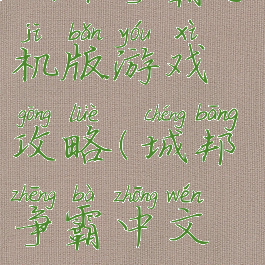 jī bǎn yóu xì
机版游戏
gōng lüè chéng bāng
攻略(城邦
zhēng bà zhōng wén
争霸中文